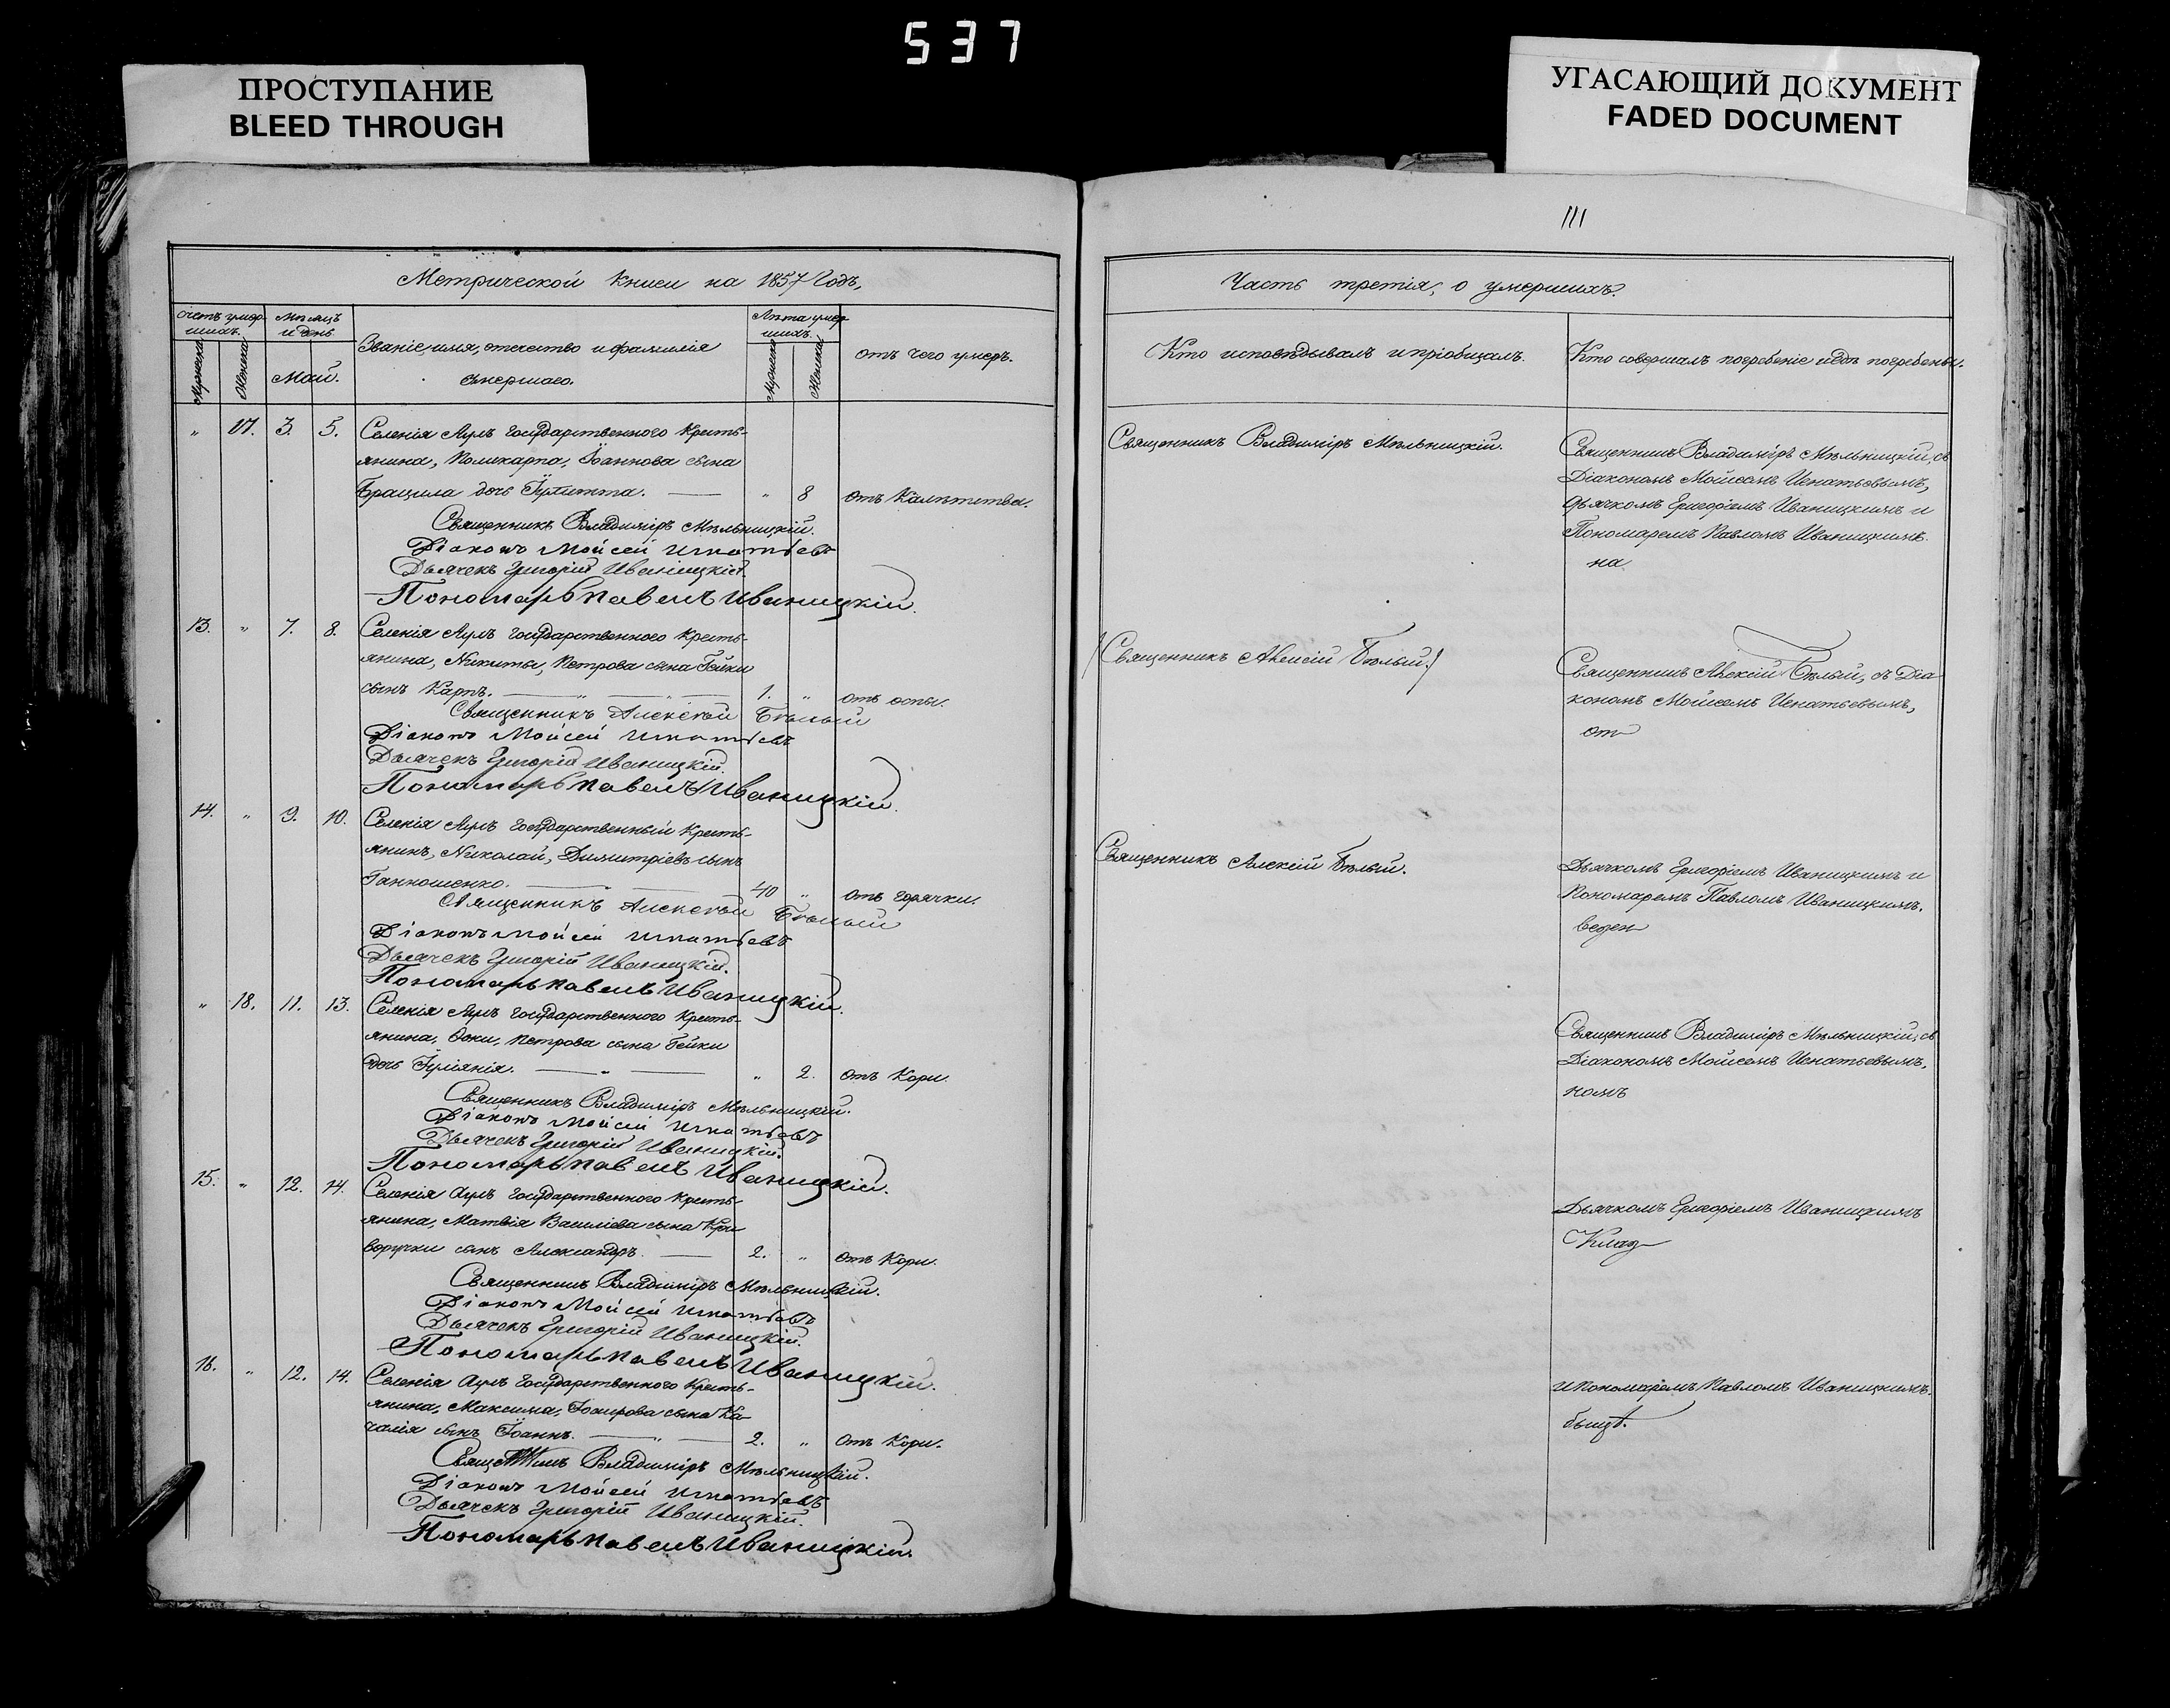 537
ПРОСТУПАНИЕ
BLEED THROUGH
УГАСАЮЩИЙ ДОКУМЕНТ
FADED DOCUMENT
Метрической книги на 1857 Годъ,
счетъ умер-
шихъ.
Мѣсяцъ
и день
Званіе, имя, отчество и фамилія
умершаго.
Лѣта умер
шихъ.
отъ чего умеръ.
Мужеска
Женска
Май.
Мужеска
Женска
„ 17. 3. 5. Селенія Аулъ государственного кресть-
янина, Поликарпа, Іоаннова сына
Брацила дочь Іулитта. — „ 8
Священникъ Владиміръ Мѣльницкій.
Діаконъ Мойсей Игнатіевъ
Дьячекъ Григорій Иваницкій.
Пономарь Павелъ Иваницкій.
13. „ 7. 8. Селенія Аулъ государственного кресть-
янина, Никиты, Петрова сына Гейки
сынъ Карпъ. — „ — 1. „ отъ оспы.
Священникъ Алексѣй Бѣлый
Діаконъ Мойсей Игнатіевъ
Дьячекъ Григорій Иваницкій.
Пономарь Павелъ Иваницкій.
14. „ 9. 10. Селенія Аулъ государственный кресть-
янинъ, Николай, Димитріевъ сынъ
Ганношенко. — „ — 40 „ отъ горячки.
Священникъ Алексѣй Бѣлый
Діаконъ Мойсей Игнатіевъ
Дьячекъ Григорій Иваницкій.
Пономарь Павелъ Иваницкій.
„ 18. 11. 13. Селенія Аулъ государственного кресть-
янина, Петрова сына Гейки
дочь Іуліянія. — „ — „ 2. отъ кори.
Священникъ Владиміръ Мѣльницкій.
Діаконъ Мойсей Игнатіевъ
Дьячекъ Григорій Иваницкій.
Пономарь Павелъ Иваницкій.
15. „ 12. 14. Селенія Аулъ государственного кресть-
янина, Матвія Василіева сына Кри
воручки сынъ Александръ. — 2. „ отъ кори.
Священникъ Владиміръ Мѣльницкій.
Діаконъ Мойсей Игнатіевъ
Дьячекъ Григорій Иваницкій.
Пономарь Павелъ Иваницкій.
16. „ 12. 14. Селенія Аулъ государственного кресть-
янина, Максима, сына Ка-
чалія сынъ Іоаннъ. — „ — 2. „ отъ кори.
Священникъ Владиміръ Мѣльницкій.
Діаконъ Мойсей Игнатіевъ
Дьячекъ Григорій Иваницкій.
Пономарь Павелъ Иваницкій.
111
Часть третія, о умершихъ.
Кто исповѣдывалъ и пріобщалъ.
Кто совершалъ погребеніе и гдѣ погребены.
Священникъ Владиміръ Мѣльницкій.
Священникъ Владиміръ Мѣльницкій, съ
Діакономъ Мойсеемъ Игнатьевымъ,
дьячкомъ Григоріемъ Иваницкимъ и
Пономаремъ Павломъ Иваницкимъ.
на
Священникъ Алексій Бѣлый.
Священникъ Алексій Бѣлый, съ Діа
кономъ Мойсеемъ Игнатьевымъ,
от
Священникъ Алексій Бѣлый.
Дьячкомъ Григоріемъ Иваницкимъ и
Пономаремъ Павломъ Иваницкимъ.
веден
Священникъ Владиміръ Мѣльницкій, съ
Діакономъ Мойсеемъ Игнатьевымъ,
номъ
Дьячкомъ Григоріемъ Иваницкимъ
Клад
и Пономаремъ Павломъ Иваницкимъ.
бищѣ.